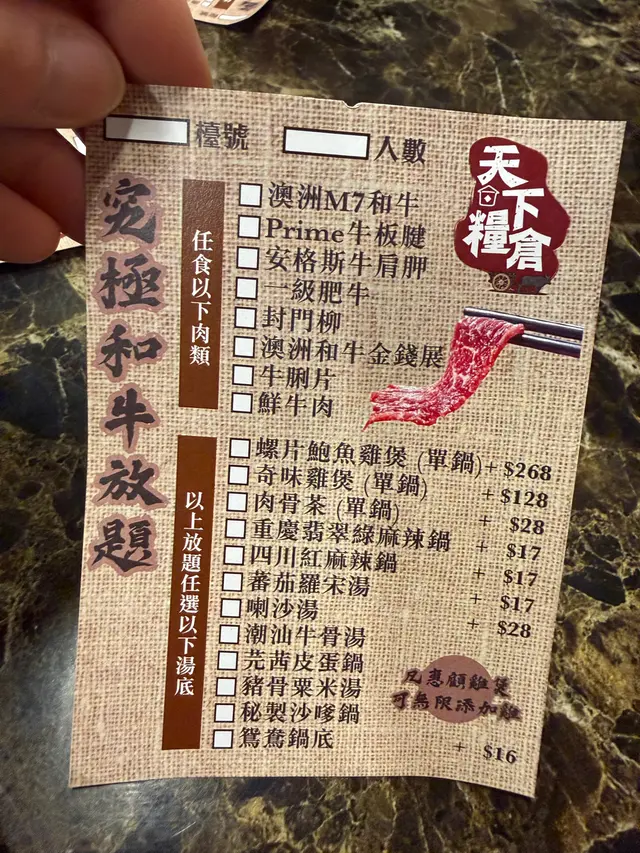 檯號
人數
天下糧倉
究極和牛放題
任食以下肉類
澳洲M7和牛
Prime牛板腱
安格斯牛肩胛
一級肥牛
封門柳
澳洲和牛金錢展
牛脷片
鮮牛肉
以上放題任選以下湯底
螺片鮑魚雞煲 (單鍋) + $268
奇味雞煲 (單鍋) + $128
肉骨茶 (單鍋) + $28
重慶翡翠綠麻辣鍋 + $17
四川紅麻辣鍋 + $17
蕃茄羅宋湯 + $17
喇沙湯 + $28
潮汕牛骨湯
芫茜皮蛋鍋
豬骨粟米湯
秘製沙嗲鍋
鴛鴦鍋底 + $16
凡惠顧雞煲
可無限添加雞